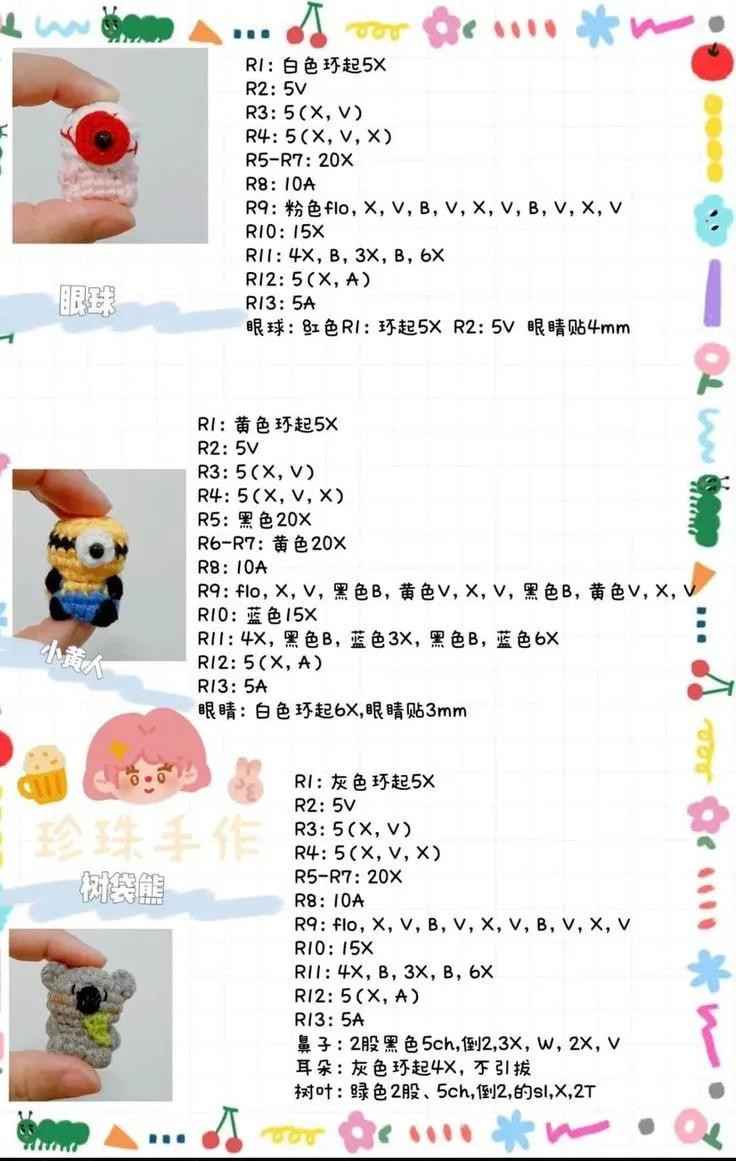 R1: 白色环起5X
R2: 5V
R3: 5(X, V)
R4: 5(X, V, X)
R5-R7: 20X
R8: 10A
R9: 粉色flo, X, V, B, V, X, V, B, V, X, V
R10: 15X
R11: 4X, B, 3X, B, 6X
R12: 5(X, A)
R13: 5A
眼球: 红色R1: 环起5X R2: 5V 眼睛贴4mm
眼球
R1: 黄色环起5X
R2: 5V
R3: 5(X, V)
R4: 5(X, V, X)
R5: 黑色20X
R6-R7: 黄色20X
R8: 10A
R9: flo, X, V, 黑色B, 黄色V, X, V, 黑色B, 黄色V, X, V
R10: 蓝色15X
R11: 4X, 黑色B, 蓝色3X, 黑色B, 蓝色6X
R12: 5(X, A)
R13: 5A
眼睛: 白色环起6X,眼睛贴3mm
小黄人
珍珠手作
树袋熊
R1: 灰色环起5X
R2: 5V
R3: 5(X, V)
R4: 5(X, V, X)
R5-R7: 20X
R8: 10A
R9: flo, X, V, B, V, X, V, B, V, X, V
R10: 15X
R11: 4X, B, 3X, B, 6X
R12: 5(X, A)
R13: 5A
鼻子: 2股黑色5ch,倒2,3X, W, 2X, V
耳朵: 灰色环起4X, 不引拔
树叶: 绿色2股、5ch,倒2,的sl,X,2T